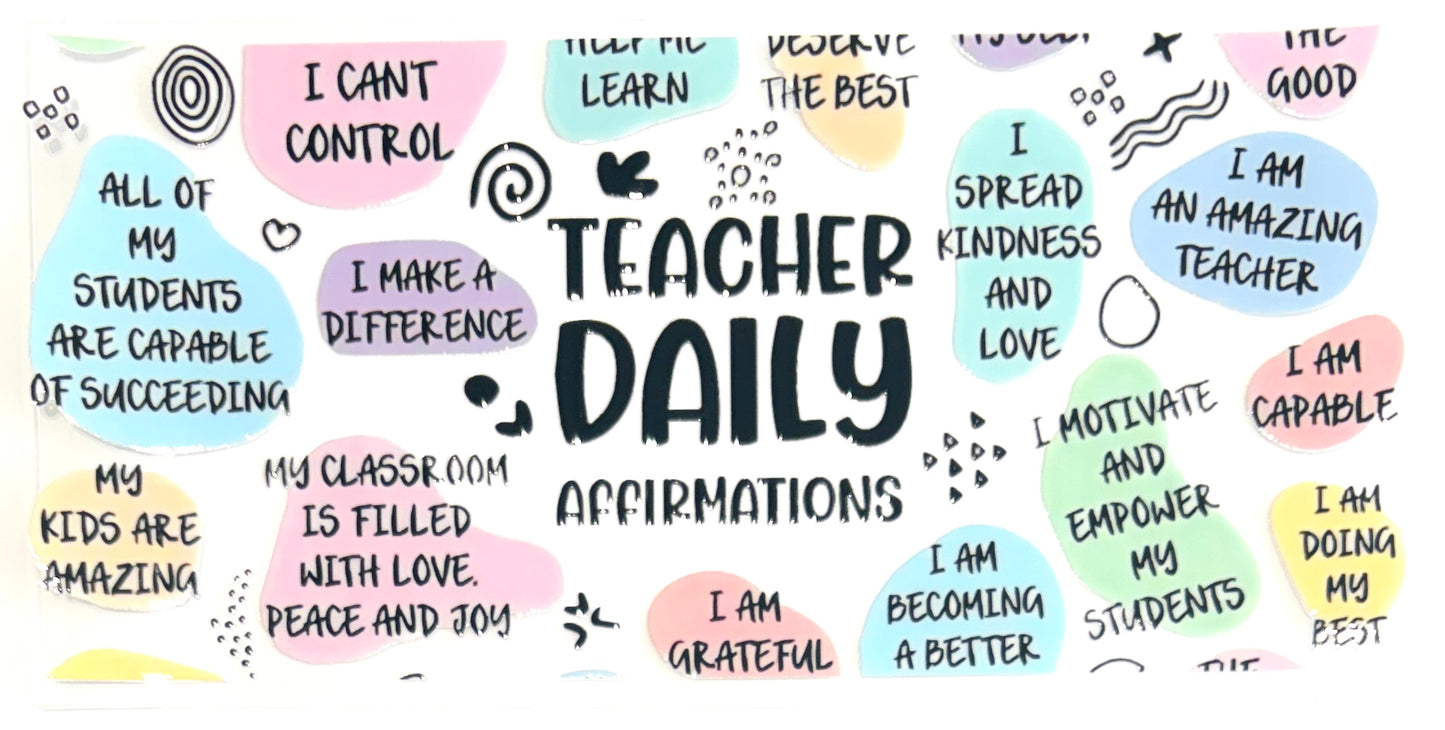 I CANT
CONTROL
HELP ME
LEARN
DESERVE
THE BEST
THE
GOOD
ALL OF
MY
STUDENTS
ARE CAPABLE
OF SUCCEEDING
I MAKE A
DIFFERENCE
TEACHER
DAILY
AFFIRMATIONS
I
SPREAD
KINDNESS
AND
LOVE
I AM
AN AMAZING
TEACHER
I AM
CAPABLE
I MOTIVATE
AND
EMPOWER
MY
STUDENTS
I AM
DOING
MY
BEST
MY
KIDS ARE
AMAZING
MY CLASSROOM
IS FILLED
WITH LOVE.
PEACE AND JOY
I AM
GRATEFUL
I AM
BECOMING
A BETTER
THE